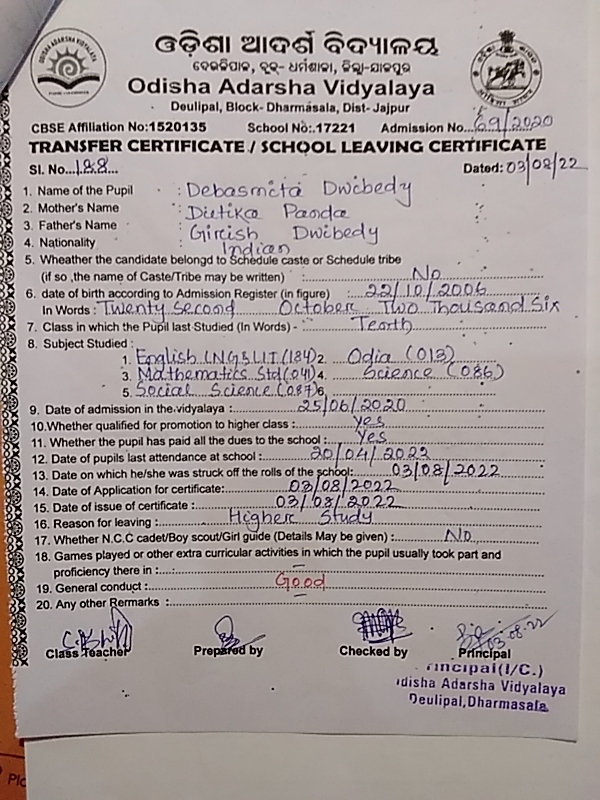 ଓଡ଼ିଶା ଆଦର୍ଶ ବିଦ୍ୟାଳୟ
ଦେଉଳିପାଳ, ବ୍ଲକ- ଧର୍ମଶାଳା, ଜିଲ୍ଲା-ଯାଜପୁର
Odisha Adarsha Vidyalaya
Deulipal, Block- Dharmasala, Dist- Jajpur
CBSE Affiliation No:1520135 School No:.17221 Admission No...69/2020
TRANSFER CERTIFICATE / SCHOOL LEAVING CERTIFICATE
Sl. No...188... Dated: 03/08/22
1. Name of the Pupil : Debasmita Dwibedy
2. Mother's Name : Dutika Panda
3. Father's Name : Girish Dwibedy
4. Nationality : Indian
5. Wheather the candidate belongd to Schedule caste or Schedule tribe
(if so ,the name of Caste/Tribe may be written) : No
6. date of birth according to Admission Register (in figure) : 22/10/2006
In Words : Twenty Second October Two Thousand Six
7. Class in which the Pupil last Studied (In Words) - Tenth
8. Subject Studied :
1. English LNG&LIT (184) 2. Odia (013)
3. Mathematics Std (041) 4. Science (086)
5. Social Science (087) 6.
9. Date of admission in the vidyalaya : 25/06/2020
10.Whether qualified for promotion to higher class : Yes
11. Whether the pupil has paid all the dues to the school : Yes
12. Date of pupils last attendance at school : 20/04/2022
13. Date on which he/she was struck off the rolls of the school: 03/08/2022
14. Date of Application for certificate: 03/08/2022
15. Date of issue of certificate : 03/08/2022
16. Reason for leaving : Higher Study
17. Whether N.C.C cadet/Boy scout/Girl guide (Details May be given) : No
18. Games played or other extra curricular activities in which the pupil usually took part and
proficiency there in : –
19. General conduct : Good
20. Any other Rermarks : –
03.08.22
Class Teacher Prepared by Checked by Principal
rincipal(I/C.)
disha Adarsha Vidyalaya
Deulipal,Dharmasala